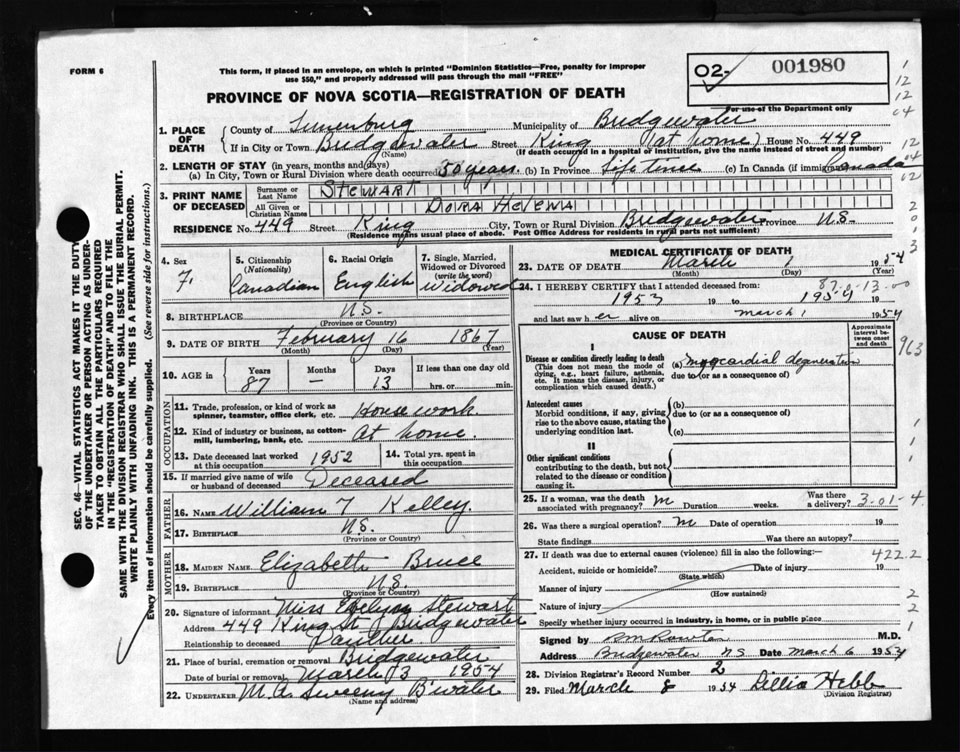 FORM 6
This form, if placed in an envelope, on which is printed "Dominion Statistics—Free, penalty for improper
use $50," and properly addressed will pass through the mail "FREE"
O2- 001980
For use of the Department only
PROVINCE OF NOVA SCOTIA—REGISTRATION OF DEATH
1. PLACE OF DEATH
County of Lunenburg Municipality of Bridgewater
If in City or Town Bridgewater Street King (at home) House No. 449
(Name) (If death occurred in a hospital or institution, give the name instead of street and number)
2. LENGTH OF STAY (in years, months and days)
(a) In City, Town or Rural Division where death occurred 50 years. (b) In Province Life time (c) In Canada (if immigrant) Canada
3. PRINT NAME OF DECEASED
Surname or Last Name STEWART
All Given or Christian Names DORA HELENA
RESIDENCE No. 449 Street King City, Town or Rural Division Bridgewater Province N.S.
(Residence means usual place of abode. Post Office Address for residents in rural parts not sufficient)
4. Sex F.
5. Citizenship (Nationality) Canadian
6. Racial Origin English
7. Single, Married, Widowed or Divorced (write the word) Widowed
8. BIRTHPLACE N.S.
(Province or Country)
9. DATE OF BIRTH February 16 1867
(Month) (Day) (Year)
10. AGE in Years 87 Months — Days 13 If less than one day
hrs. or min.
OCCUPATION
11. Trade, profession, or kind of work as spinner, teamster, office clerk, etc. Housework.
12. Kind of industry or business, as cotton-mill, lumbering, bank, etc. At home.
13. Date deceased last worked at this occupation 1952
14. Total yrs. spent in this occupation
15. If married give name of wife or husband of deceased Deceased
FATHER
16. Name William T Kelley.
17. Birthplace N.S.
(Province or Country)
MOTHER
18. Maiden Name Elizabeth Bruce
19. Birthplace N.S.
(Province or Country)
20. Signature of informant Miss Evelyn Stewart
Address 449 King St Bridgewater
Relationship to deceased Daughter
21. Place of burial, cremation or removal Bridgewater
Date of burial or removal March 3 1954
22. Undertaker M.A. Sweeny B'water
(Name and address)
MEDICAL CERTIFICATE OF DEATH
23. DATE OF DEATH March 1 1954
(Month) (Day) (Year)
87-0-13-00
24. I HEREBY CERTIFY that I attended deceased from:
1953 19 to 1954 19
and last saw her alive on march 1 1954
CAUSE OF DEATH
Approximate interval between onset and death
I
Disease or condition directly leading to death
(This does not mean the mode of dying, e.g., heart failure, asthenia, etc. It means the disease, injury, or complication which caused death.)
(a) myocardial degeneration
due to (or as a consequence of)
Antecedent causes
Morbid conditions, if any, giving rise to the above cause, stating the underlying condition last.
(b)
due to (or as a consequence of)
(c)
II
Other significant conditions
contributing to the death, but not related to the disease or condition causing it.
25. If a woman, was the death associated with pregnancy? Duration weeks. Was there a delivery? 3-01-4
26. Was there a surgical operation? Date of operation 19
State findings Was there an autopsy?
27. If death was due to external causes (violence) fill in also the following:— 422.2
Accident, suicide or homicide? Date of injury 19
(State which)
Manner of injury
(How sustained)
Nature of injury
Specify whether injury occurred in industry, in home, or in public place
Signed by M.D.
Address Bridgewater NS Date March 6 1954
28. Division Registrar's Record Number 2
29. Filed March 8 1954 Lillia Hebb
(Division Registrar)
SEC. 46—VITAL STATISTICS ACT MAKES IT THE DUTY
OF THE UNDERTAKER OR PERSON ACTING AS UNDER-
TAKER TO OBTAIN ALL THE PARTICULARS REQUIRED
IN THE "REGISTRATION OF DEATH" AND TO FILE THE
SAME WITH THE DIVISION REGISTRAR WHO SHALL ISSUE THE BURIAL PERMIT.
WRITE PLAINLY WITH UNFADING INK. THIS IS A PERMANENT RECORD.
Every item of information should be carefully supplied. (See reverse side for instructions.)
1
12
12
04
12
04
02
2
0
1
3
963
1
1
1
2
2
1